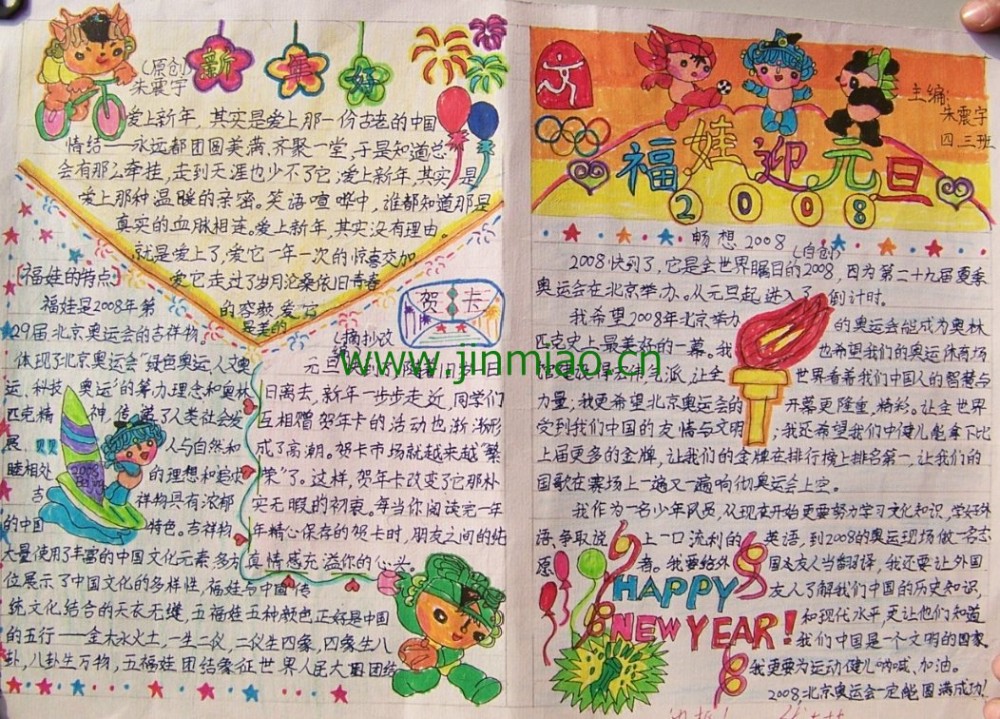 新年好
(原创)
朱震宇
爱上新年，其实是爱上那一份古老的中国
情结——永远都团圆美满，齐聚一堂，于是知道总
会有那么牵挂，走到天涯也少不了它；爱上新年，其实是
爱上那种温暖的亲密。笑语喧哗中，谁都知道那是
真实的血脉相连。爱上新年，其实没有理由。
就是爱上了，爱它一年一次的惊喜交加
爱它走过了岁月沧桑依旧青春
的容颜 爱 它
最美的
[福娃的特点]
福娃是2008年第
29届北京奥运会的吉祥物。
体现了北京奥运会"绿色奥运、人文奥
运、科技 奥运"的筹办理念和奥林
匹克精 神，传递了人类社会发
展 人与自然和
睦相处 的理想和追求
吉 祥物具有浓郁
的中国 特色。吉祥物
大量使用了丰富的中国文化元素，多方
位展示了中国文化的多样性，福娃与中国传
统文化结合的天衣无缝，五福娃五种颜色正好是中国
的五行——金木水火土，一生二仪，二仪生四象，四象生八
卦，八卦生万物，五福娃团结象征世界人民大团团结
贺卡
(摘抄改
日离去，新年一步步走近，同学们
互相赠贺年卡的活动也渐渐形
成了高潮。贺卡市场就越来越"繁
荣"了。这样，贺年卡改变了它那朴
实无暇的初衷。每当你阅读完一年
年精心保存的贺卡时，朋友之间的纯
真情感充溢你的心头。
主编:
朱震宇
四三班
福娃迎元旦
2008
畅想2008
(自创)
2008快到了，它是全世界瞩目的2008，因为第二十九届夏季
奥运会在北京举办。从元旦起，进入了 倒计时。
我希望2008年北京举办 的奥运会能成为奥林
匹克史上最美好的一幕。我 也希望我们的奥运体育场
让全 世界看着我们中国人的智慧与
力量，我更希望北京奥运会的 开幕更隆重，精彩。让全世界
受到我们中国的友情与文明 ，我还希望我们中健儿能拿下比
上届更多的金牌，让我们的金牌在排行榜上排名第一，让我们的
国歌在赛场上一遍又一遍响彻奥运会上空。
我作为一名少年队员，从现在开始更要努力学习文化知识，学好外
语，争取说 上一口流利的 英语，到2008的奥运现场做一名志
愿 者。我要给外 国友人当翻译，我还要让外国
友人了解我们中国的历史知识，
和现代水平，更让他们知道
我们中国是一个文明的国家
我更要为运动健儿呐喊、加油。
2008北京奥运会一定能圆满成功!
HAPPY
NEW YEAR!
www.jinmiao.cn